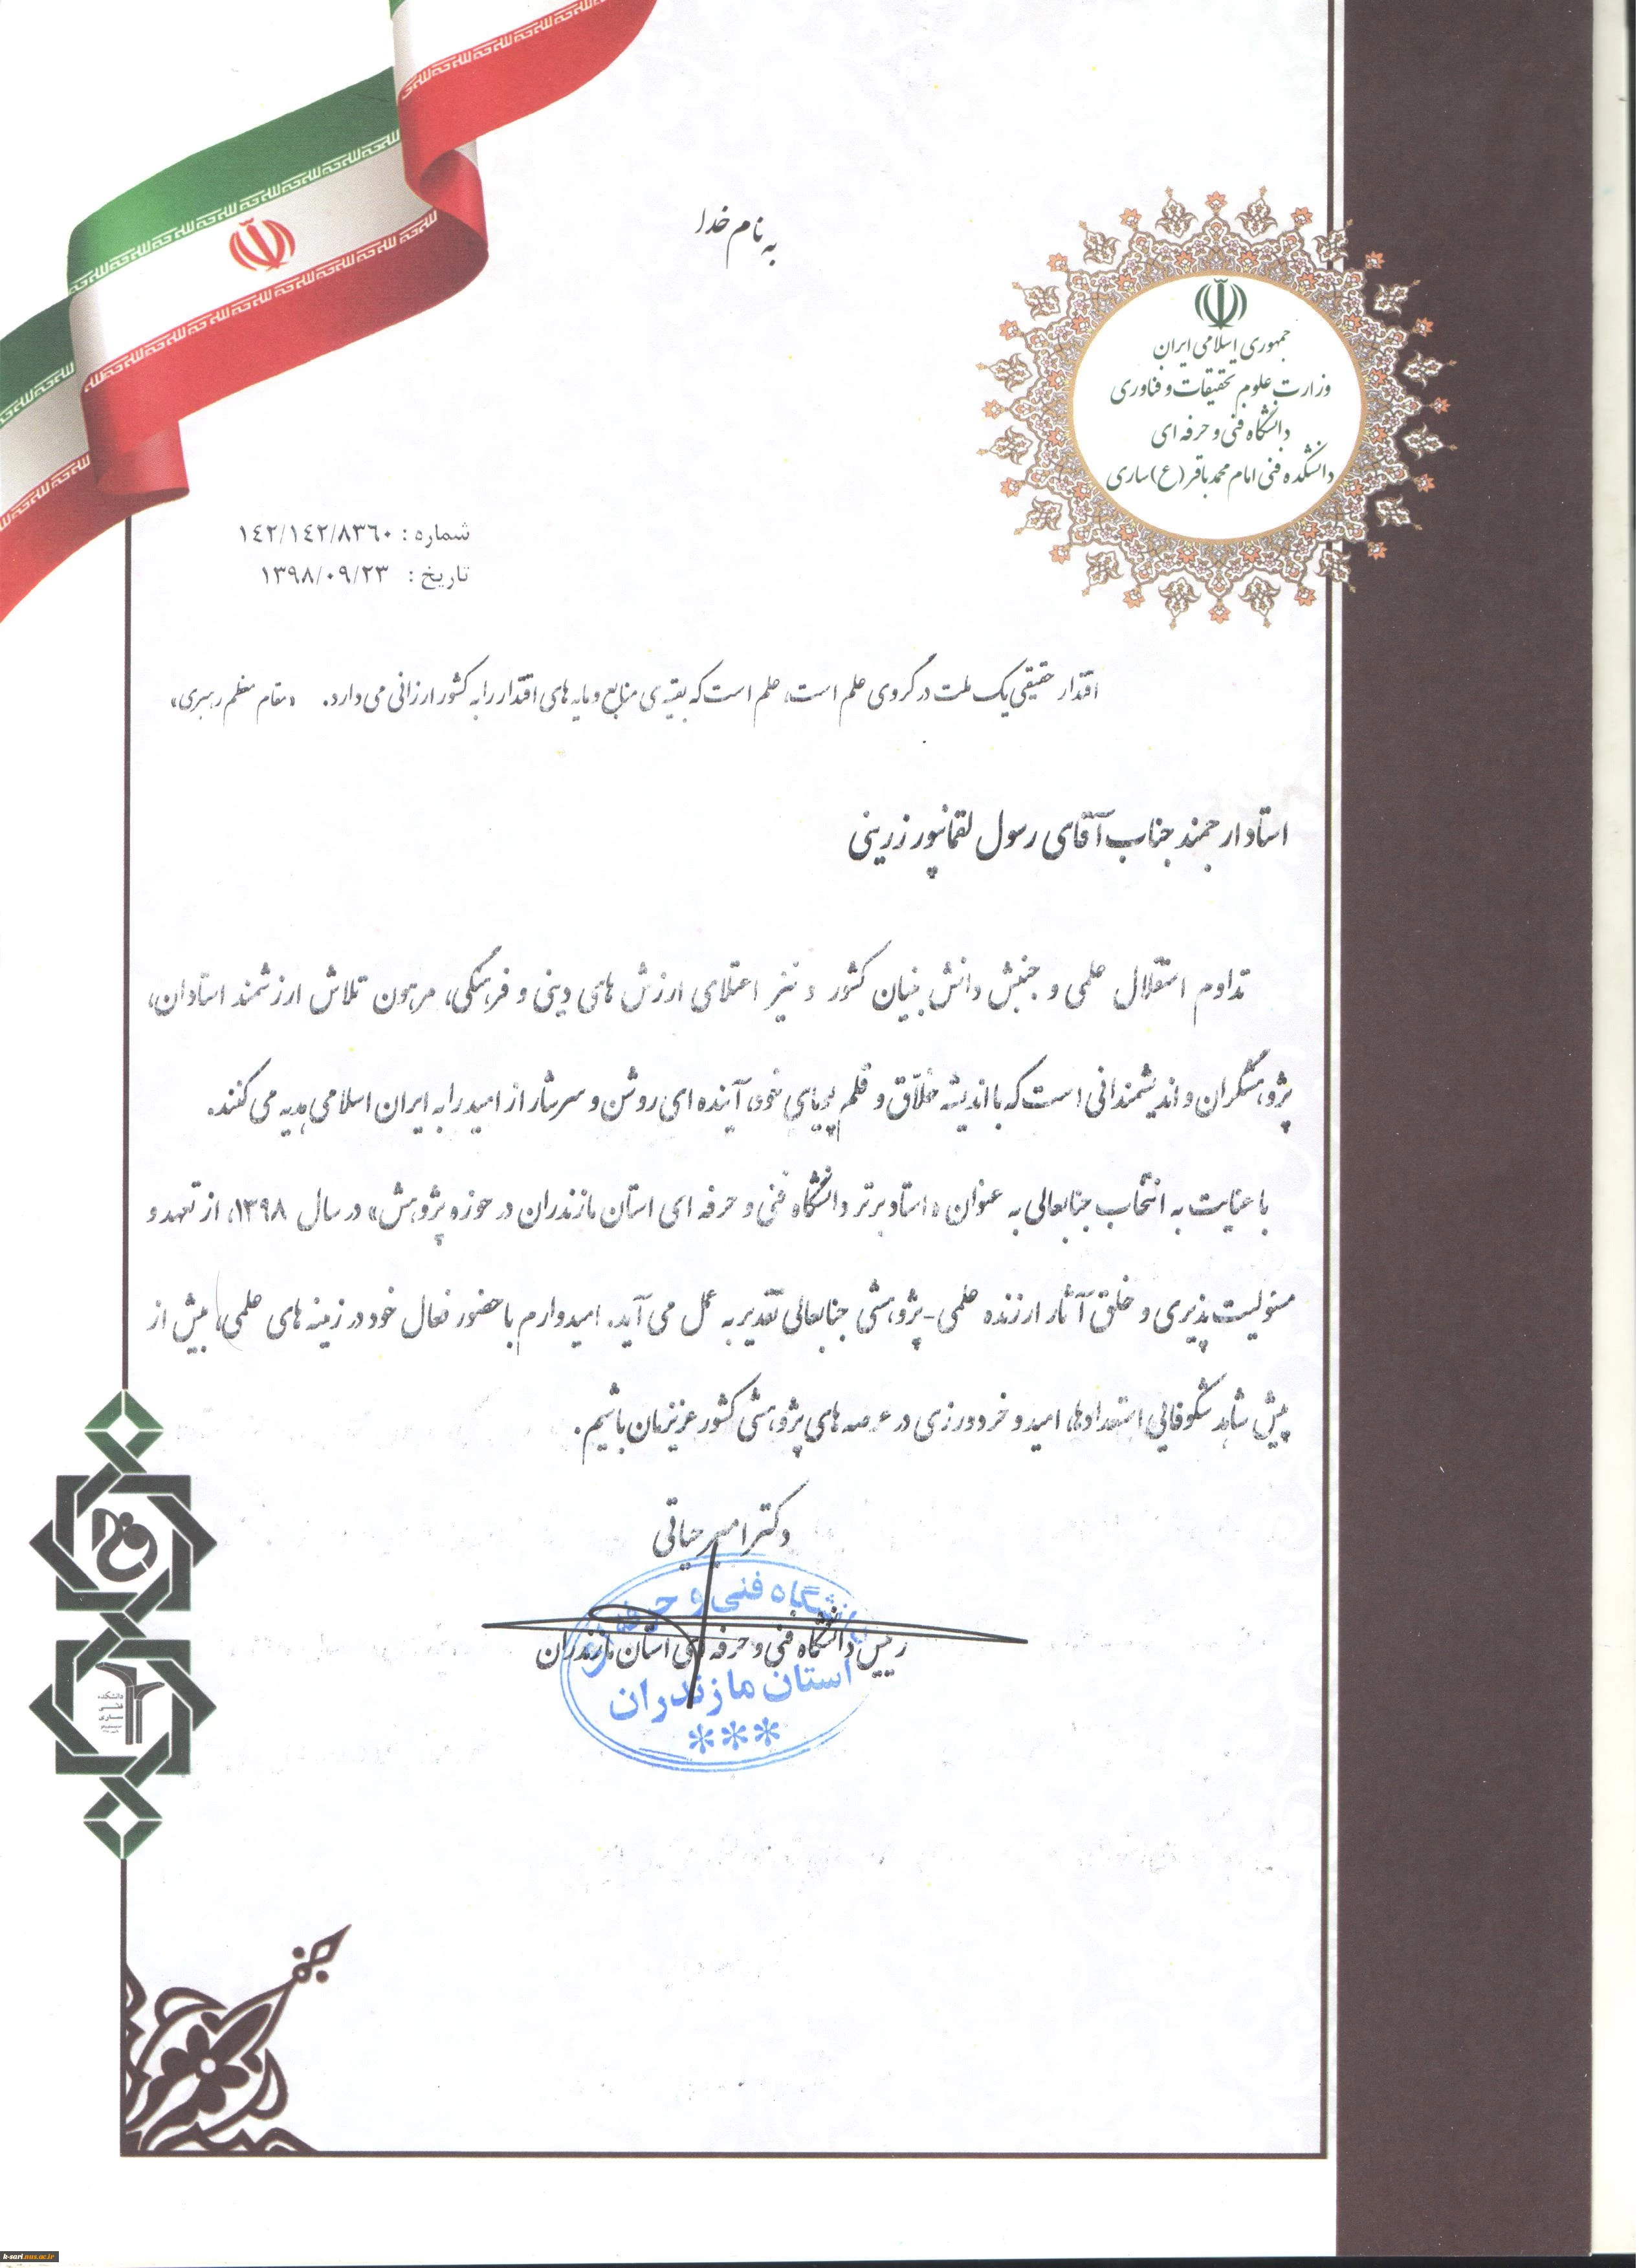 به نام خدا
جمهوری اسلامی ایران
وزارت علوم تحقیقات و فناوری
دانشگاه فنی و حرفه ای
دانشکده فنی امام محمد باقر (ع) ساری
شماره : ۱۴۲/۱۴۲/۸۳۶۰
تاریخ : ۱۳۹۸/۰۹/۲۳
اقتدار حقیقی یک ملت در گروی علم است، علم است که بقیه ی منابع و مایه های اقتدار را به کشور ارزانی می دارد. «مقام معظم رهبری»
استاد ارجمند جناب آقای رسول لقمانپور زرینی
تداوم استقلال علمی و جنبش دانش بنیان کشور و نیز اعتلای ارزش های دینی و فرهنگی، مرهون تلاش ارزشمند استادان،
پژوهشگران و اندیشمندانی است که با اندیشه خلاّق و قلم پویای خود، آینده ای روشن و سرشار از امید را به ایران اسلامی هدیه می کنند.
با عنایت به انتخاب جنابعالی به عنوان «استاد برتر دانشگاه فنی و حرفه ای استان مازندران در حوزه پژوهش» در سال ۱۳۹۸، از تعهد و
مسئولیت پذیری و خلق آثار ارزنده علمی-پژوهشی جنابعالی تقدیر به عمل می آید. امیدوارم با حضور فعال خود در زمینه های علمی، بیش از
پیش شاهد شکوفایی استعدادها، امید و خردورزی در عرصه های پژوهشی کشور عزیزمان باشیم.
دکتر امیر حیاتی
رییس دانشگاه فنی و حرفه ای استان مازندران
دانشگاه فنی و حرفه ای
استان مازندران
***
دانشکده
فنی
ساری
k-sari.nus.ac.ir